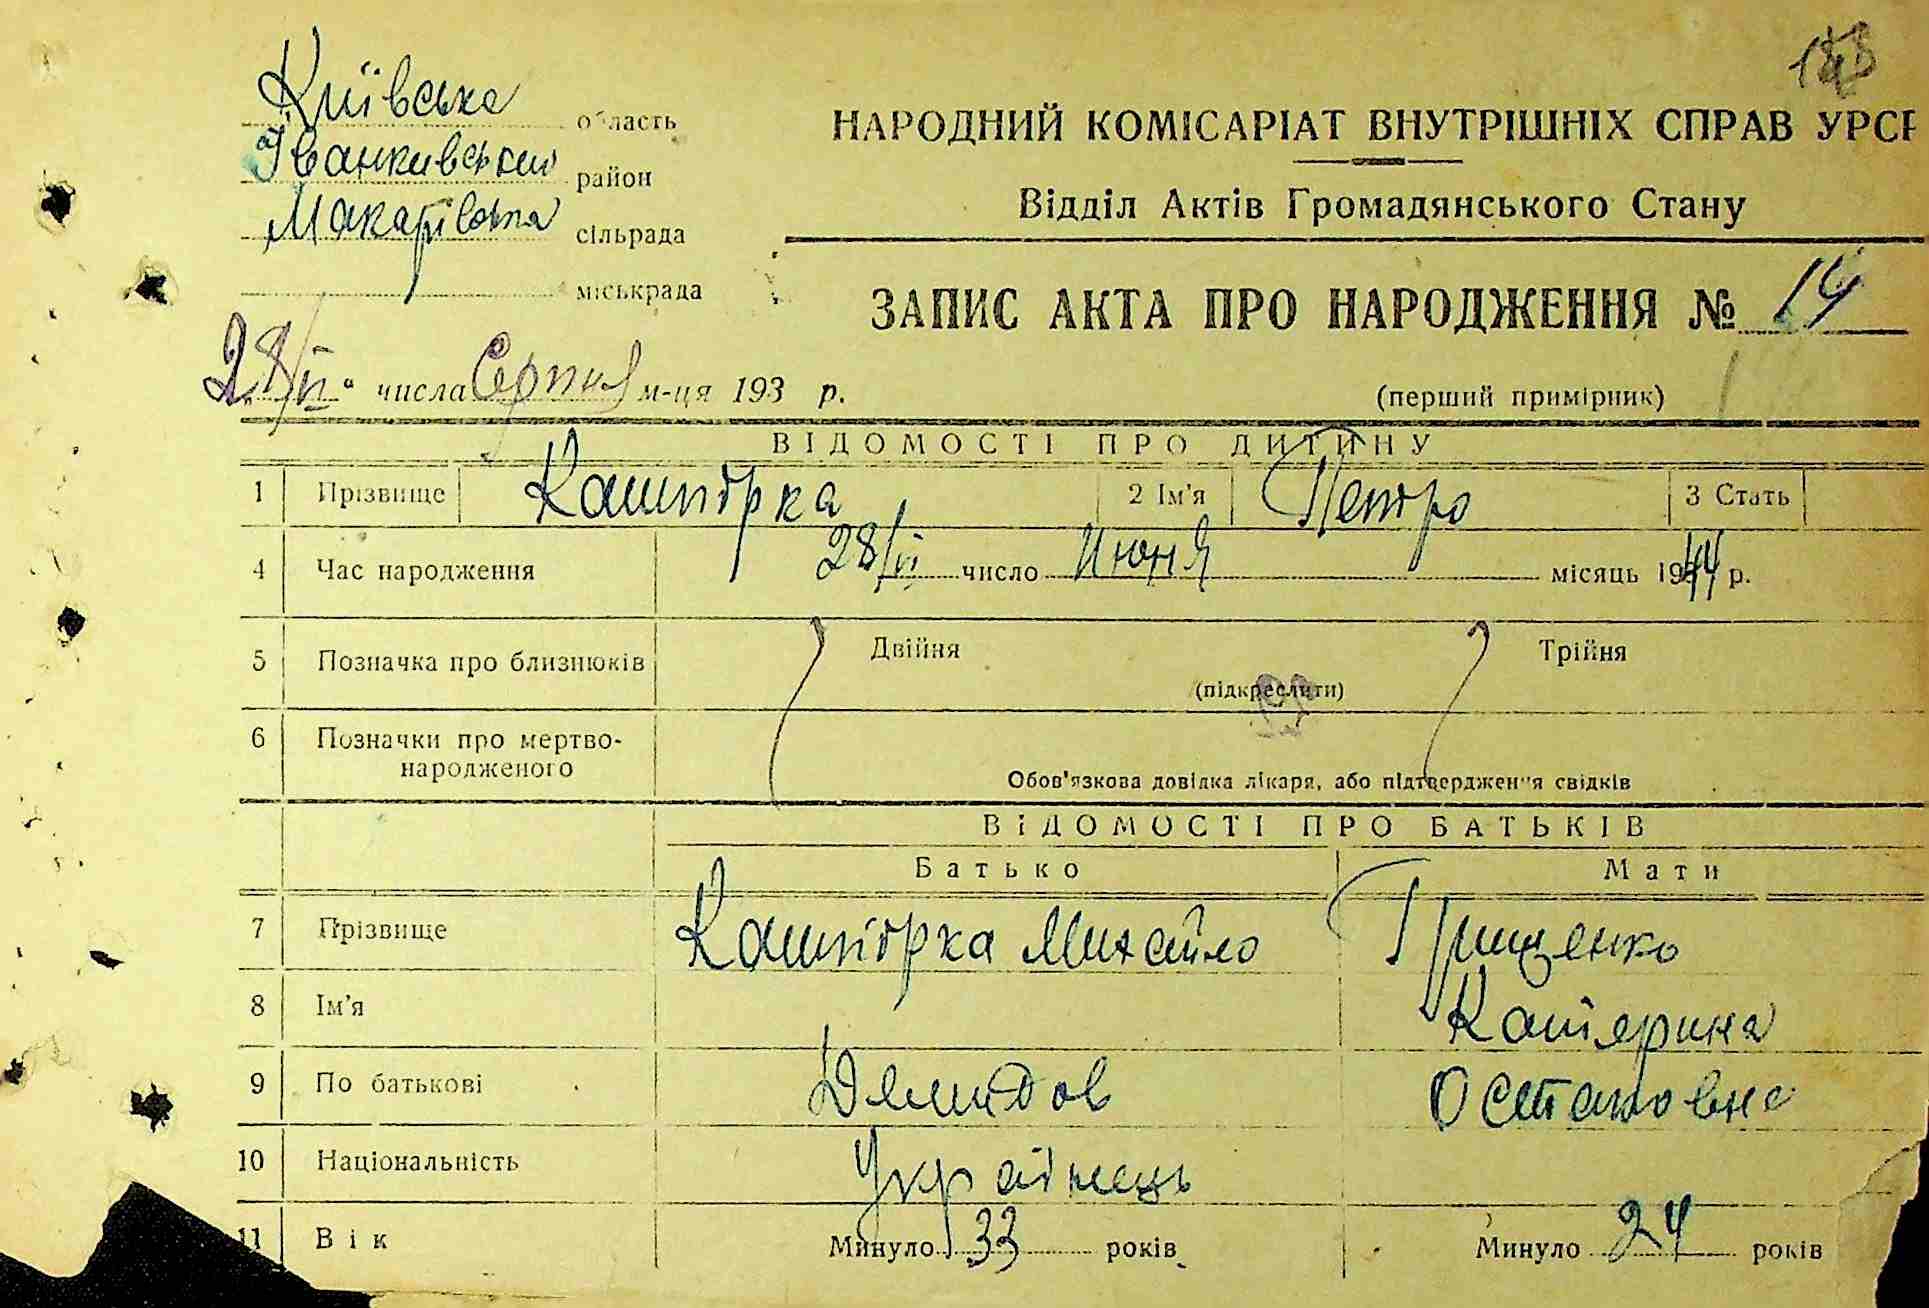 Київська область
Іванківський район
Макарівська сільрада
міськрада
НАРОДНИЙ КОМІСАРІАТ ВНУТРІШНІХ СПРАВ УРСР
Відділ Актів Громадянського Стану
ЗАПИС АКТА ПРО НАРОДЖЕННЯ № 14
28/VI" числа Серпня м-ця 193 р.
(перший примірник)
ВІДОМОСТІ ПРО ДИТИНУ
1 Прізвище Кашпірка 2 Ім'я Петро 3 Стать
4 Час народження 28/VI число Июня місяць 1944 р.
5 Позначка про близнюків Двійня Трійня
(підкреслити)
6 Позначки про мертво-
народженого
Обов'язкова довідка лікаря, або підтвердження свідків
ВІДОМОСТІ ПРО БАТЬКІВ
Батько Мати
7 Прізвище Кашпірка Михайло Грищенко
8 Ім'я Катерина
9 По батькові Демидов Остаповна
10 Національність Українець
11 Вік Минуло 33 років Минуло 24 років